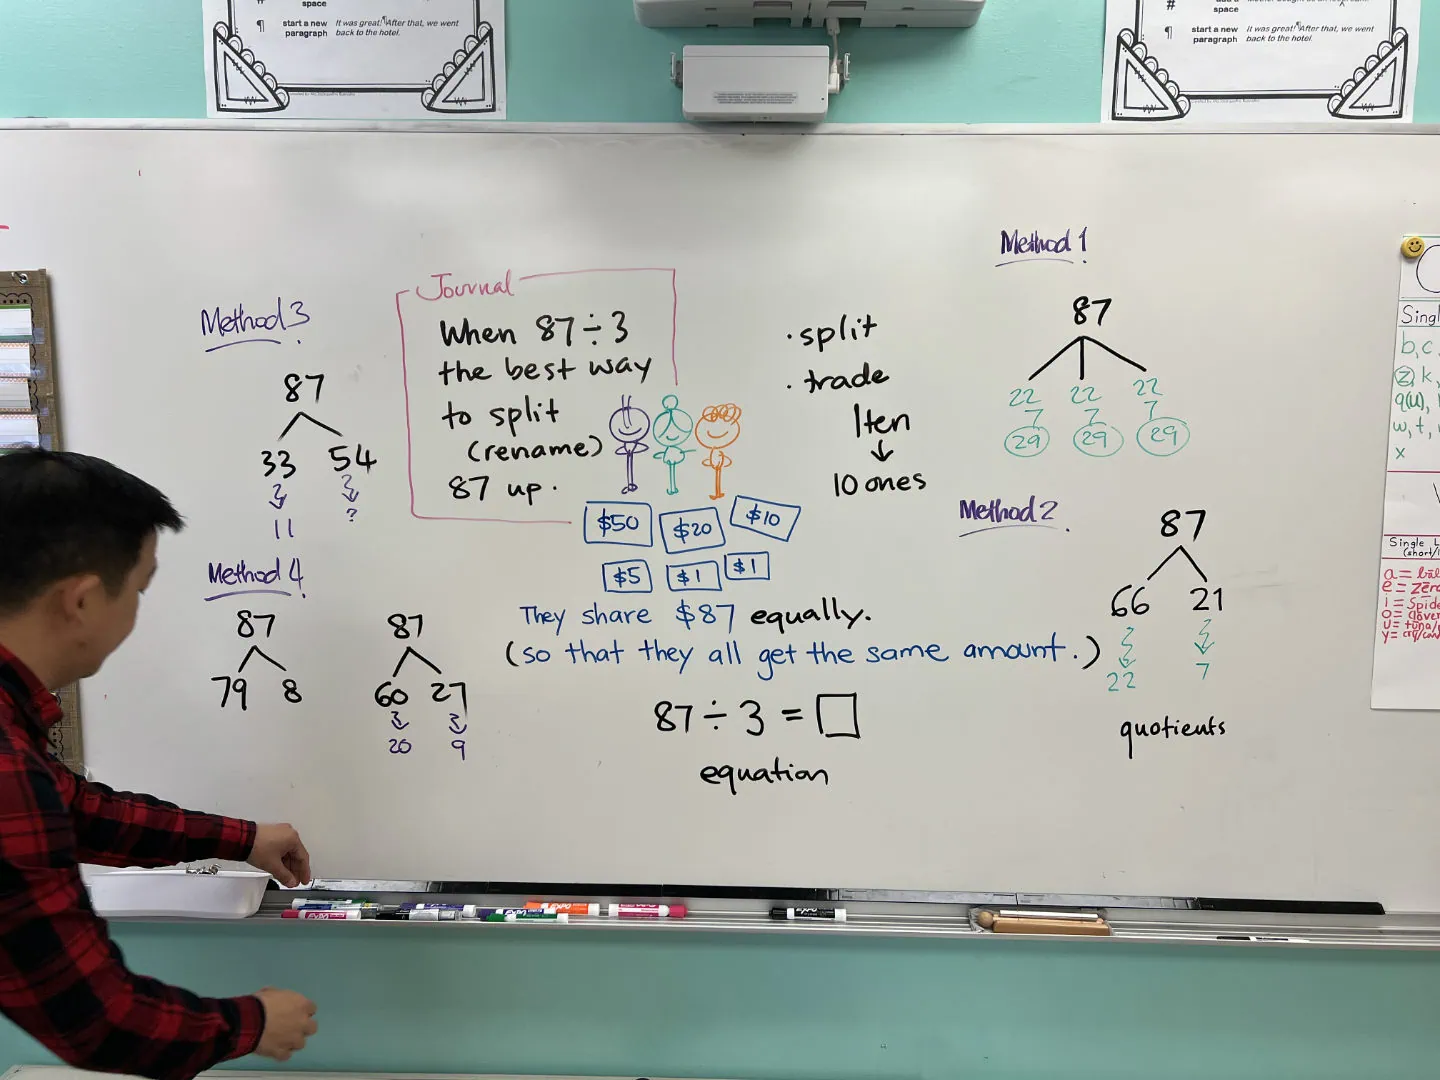 space
¶ start a new paragraph It was great!¶After that, we went back to the hotel.
#
space
¶ start a new paragraph It was great!¶After that, we went back to the hotel.
Method 3
87
33 54
11 ?
Method 4
87
79 8
87
60 27
20 9
Journal
When 87 ÷ 3
the best way
to split
(rename)
87 up.
$50 $20 $10
$5 $1 $1
They share $87 equally.
(so that they all get the same amount.)
87 ÷ 3 = □
equation
· split
· trade
1 ten
10 ones
Method 1
87
22 22 22
7 7 7
29 29 29
Method 2
87
66 21
22 7
quotients
b, c,
z, k,
q(u),
w, t,
x
EXPO
EXPO
EXPO
EXPO